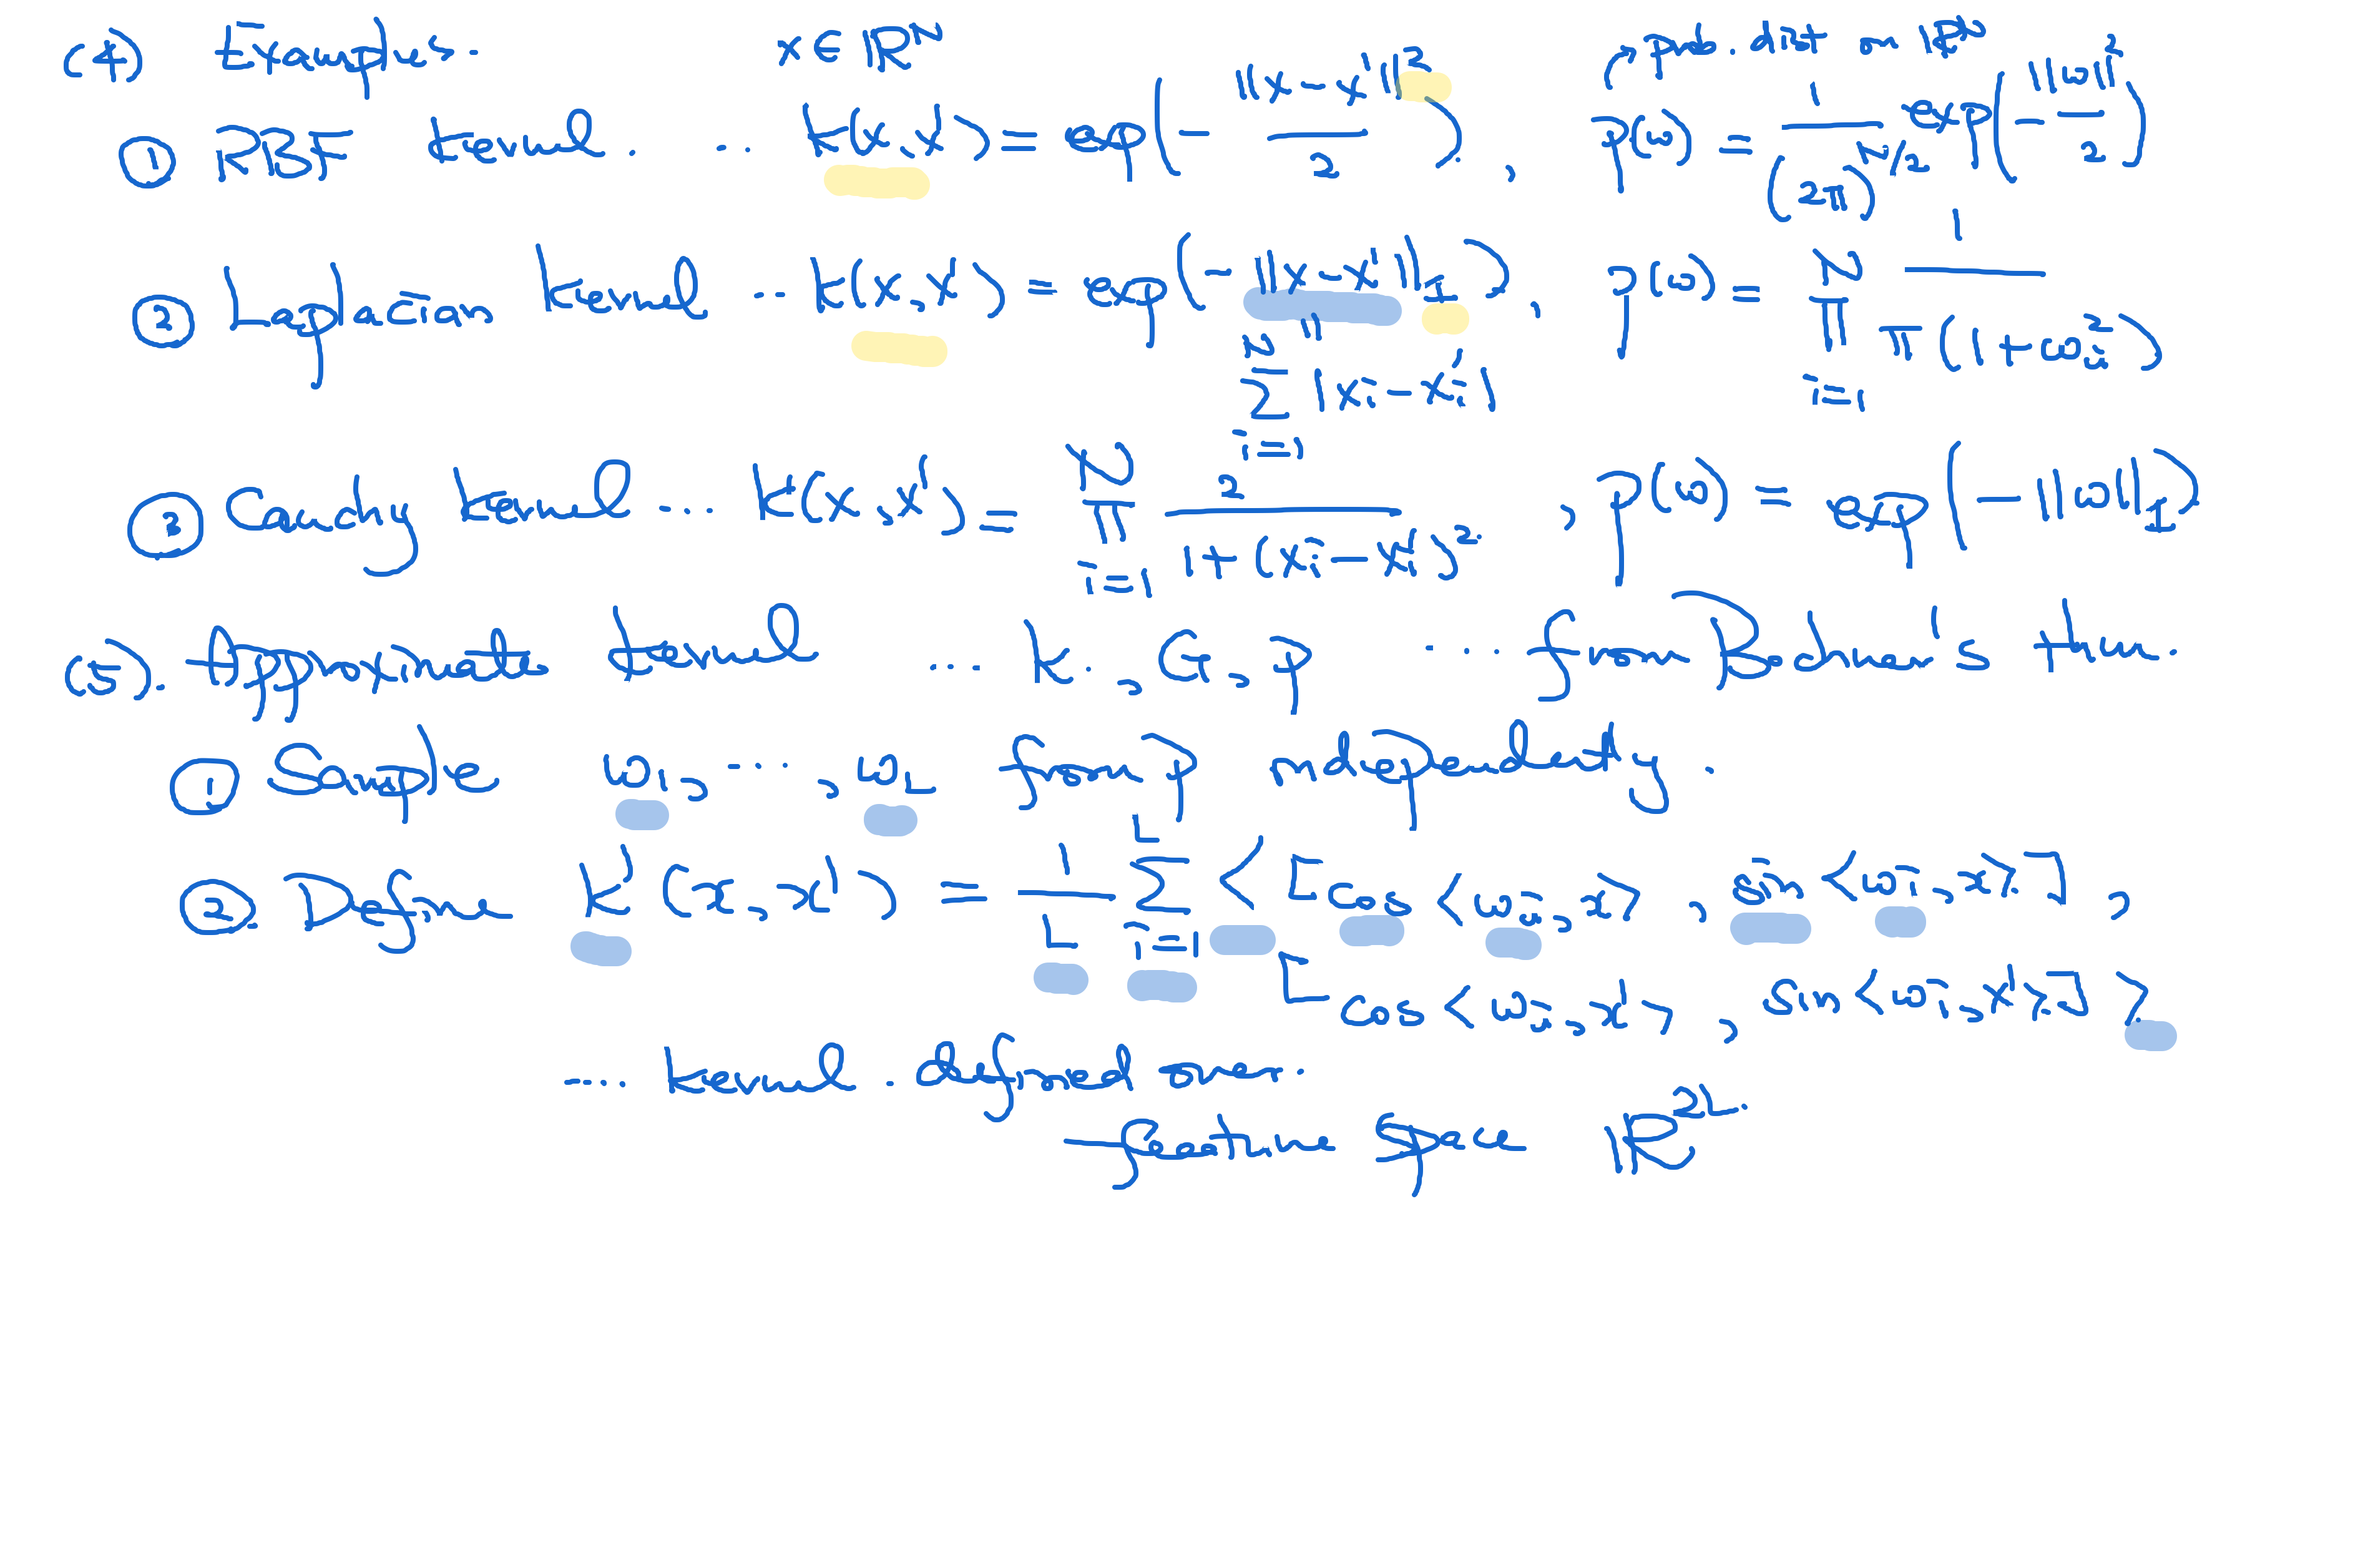 (4) Examples. x ∈ ℝ^N , prob. dist on ℝ^N
① RBF kernel. ... k(x,x') = exp(− ‖x−x'‖² / 2), p(ω) = 1/(2π)^{N/2} exp(− ‖ω‖² / 2)
② Laplacian kernel ... k(x,x') = exp(− ‖x−x'‖₁), p(ω) = ∏_{i=1}^N 1 / π(1+ω_i²)
∑_{i=1}^N |x_i − x_i'|
③ Cauchy kernel ... k(x,x') = ∏_{i=1}^N 2 / 1+(x_i−x_i')², p(ω) = exp(−‖ω‖₁)
(5). Approximate kernel ... k., G, p ... from Bochner's thm.
① Sample ω₁, ..., ω_L from p independently.
② Define k'(x,x') = 1/L ∑_{i=1}^L < [cos<ω_i,x>, sin<ω_i,x>],
[cos<ω_i,x'>, sin<ω_i,x'>] >
.... kernel. defined one.
feature space ℝ^{2L}.